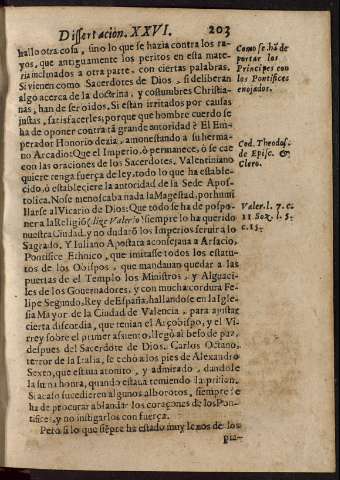 Dissertacion. XXVI. 203
hallo otra cosa, sino lo que se hazia contra los ra-
yos, que antiguamente los peritos en esta mate-
ria inclinados a otra parte, con ciertas palabras.
Si vienen como Sacerdotes de Dios, si deliberan
algo acerca de la doctrina, y costumbres Christia-
nas, han de ser oidos. Si están irritados por causas
justas, satisfacerles; porque que hombre cuerdo se
ha de oponer contra tã grande autoridad? El Em-
perador Honorio dezia, amonestando a su herma-
no Arcadio: Q̃ el Imperio, ò permanece, ò se cae
con las oraciones de los Sacerdotes. Valentiniano
quiere tenga fuerça de ley, todo lo que ha estable-
cido, ò estableciere la autoridad de la Sede Apos-
tolica. No se menoscaba nada la Magestad, por humi
llarse al Vicario de Dios: Que todo se ha de pospo-
ner a la Religiõ (dize Valerio) siempre lo ha querido
nuestra Ciudad, y no dudarõ los Imperios seruir a lo
Sagrado. Y Iuliano Apostata aconsejaua a Arsacio,
Pontifice Ethnico, que imitasse todos los estatu-
tos de los Obispos, que mandauan quedar a las
puertas de el Templo los Ministros, y Alguaci-
les de los Gouernadores, y con mucha cordura Fe-
lipe Segundo, Rey de España, hallandose en la Igle
sia Mayor de la Ciudad de Valencia, para ajustar
cierta discordia, que tenian el Arçobispo, y el Vi-
rrey sobre el primer assiento, llegó al beso de paz,
despues del Sacerdote de Dios. Carlos Octauo,
terror de la Italia, se echò a los pies de Alexandro
Sexto, que estaua atonito, y admirado, dandole
la suma honra, quando estaua temiendo la prision.
Si acaso sucedieren algunos alborotos, siempre se
ha de procurar ablandar los coraçones de los Pon-
tifices, y no instigarlos con fuerça.
Pero si lo que siẽpre ha estado muy lexos de los
pia-
Como se ha de
portar los
Principes con
los Pontifices
enojados.
Cod. Theodos.
de Episc. &
Clero.
Valer. l. 7. c.
11 Soz. l. 5.
c. 15.